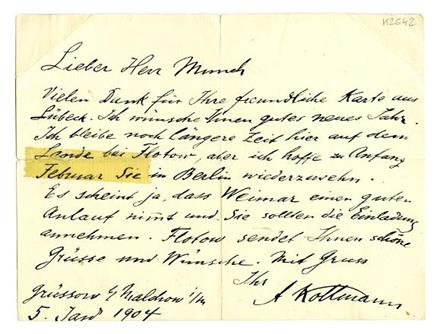 K2642
Lieber Herr Munch
Vielen Dank für Ihre freundliche Karte aus
Lübeck. Ich wünsche Ihnen gutes neues Jahr.
Ich bleibe noch längere Zeit hier auf dem
Lande bei Flotow, aber ich hoffe zu Anfang
Februar Sie in Berlin wiederzusehn.
Es scheint ja, dass Weimar einen guten
Anlauf nimmt und Sie sollten die Einladung
annehmen. Flotow sendet Ihnen schöne
Grüsse und Wünsche. Mit Gruss
Ihr
A Kollmann
Grüssow b/ Malchow i/M
5. Jan 1904